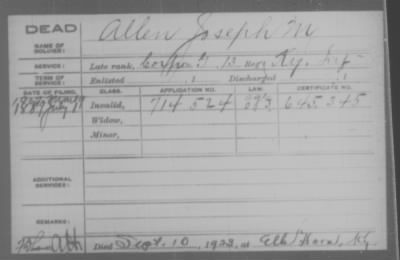 DEAD
NAME OF SOLDIER:
Allen Joseph M
SERVICE:
Late rank, Co. G, 13 Reg't Ky. Inf
TERM OF SERVICE:
Enlisted , 1 Discharged , 1
DATE OF FILING. CLASS. APPLICATION NO. LAW. CERTIFICATE NO.
1889 July 11 Invalid, 714 524 645 345
Widow,
Minor,
ADDITIONAL SERVICES:
REMARKS:
Died Sept. 10, 1923, at Elk Horn, Ky